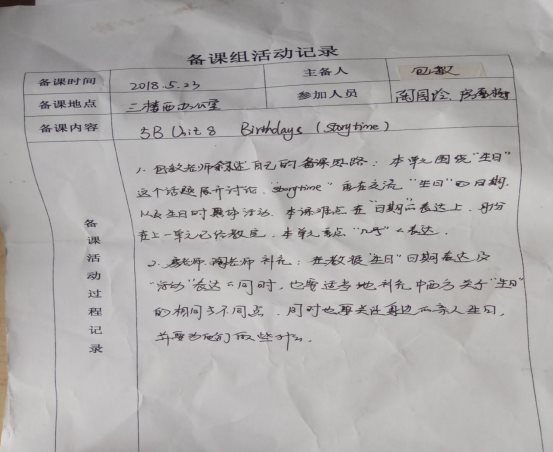 备课组活动记录
备课时间 2018.5.23 主备人 包敏
备课地点 三楼西办公室 参加人员 陶国玲
备课内容 5B Unit 8 Birthdays (Storytime)
备课活动过程记录
1. 包敏老师叙述自己的备课思路：本单元围绕“生日”
这个话题展开讨论。“Storytime”重在交流“生日”的日期，
以及生日时具体活动。本课难点在“日期”的表达上，月份
在上一单元已经教过，本单元重点“几号”的表达。
2. 老师、陶老师补充：在教授“生日”日期表达及
“活动”表达的同时，也要适当地补充中西方关于“生日”
的相同与不同点，同时也要关注身边的亲人生日，
并要为他们做些什么。